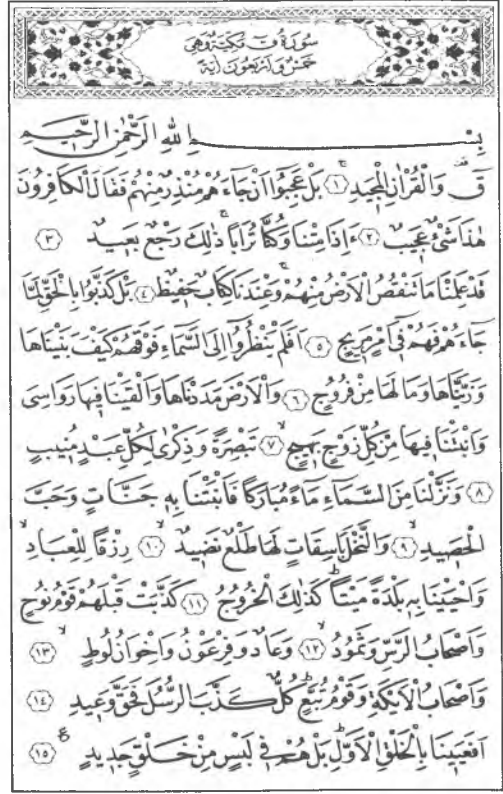 سُورَةُ قٓ مَكِّيَّةٌ وَهِىَ
خَمْسٌ وَاَرْبَعُونَ اٰيَةً
بِسْمِ اللّٰهِ الرَّحْمٰنِ الرَّحِيمِ
قٓ وَالْقُرْاٰنِ الْمَجِيدِ ﴿١﴾ بَلْ عَجِبُٓوا اَنْ جَٓاءَهُمْ مُنْذِرٌ مِنْهُمْ فَقَالَ الْكَافِرُونَ
هٰذَا شَىْءٌ عَجِيبٌ ﴿٢﴾ ءَاِذَا مِتْنَا وَكُنَّا تُرَاباً ذٰلِكَ رَجْعٌ بَعِيدٌ ﴿٣﴾
قَدْ عَلِمْنَا مَا تَنْقُصُ الْاَرْضُ مِنْهُمْ وَعِنْدَنَا كِتَابٌ حَفِيظٌ ﴿٤﴾ بَلْ كَذَّبُوا بِالْحَقِّ لَمَّا
جَٓاءَهُمْ فَهُمْ فِٓى اَمْرٍ مَرِيجٍ ﴿٥﴾ اَفَلَمْ يَنْظُرُٓوا اِلَى السَّمَٓاءِ فَوْقَهُمْ كَيْفَ بَنَيْنَاهَا
وَزَيَّنَّاهَا وَمَا لَهَا مِنْ فُرُوجٍ ﴿٦﴾ وَالْاَرْضَ مَدَدْنَاهَا وَاَلْقَيْنَا فِيهَا رَوَاسِىَ
وَاَنْبَتْنَا فِيهَا مِنْ كُلِّ زَوْجٍ بَهِيجٍ ﴿٧﴾ تَبْصِرَةً وَذِكْرٰى لِكُلِّ عَبْدٍ مُنِيبٍ
﴿٨﴾ وَنَزَّلْنَا مِنَ السَّمَٓاءِ مَٓاءً مُبَارَكاً فَاَنْبَتْنَا بِهِ جَنَّاتٍ وَحَبَّ
الْحَصِيدِ ﴿٩﴾ وَالنَّخْلَ بَاسِقَاتٍ لَهَا طَلْعٌ نَضِيدٌ ﴿١٠﴾ رِزْقاً لِلْعِبَادِ
وَاَحْيَيْنَا بِهِ بَلْدَةً مَيْتاً كَذٰلِكَ الْخُرُوجُ ﴿١١﴾ كَذَّبَتْ قَبْلَهُمْ قَوْمُ نُوحٍ
وَاَصْحَابُ الرَّسِّ وَثَمُودُ ﴿١٢﴾ وَعَادٌ وَفِرْعَوْنُ وَاِخْوَانُ لُوطٍ ﴿١٣﴾
وَاَصْحَابُ الْاَيْكَةِ وَقَوْمُ تُبَّعٍ كُلٌّ كَذَّبَ الرُّسُلَ فَحَقَّ وَعِيدِ ﴿١٤﴾
اَفَعَيِينَا بِالْخَلْقِ الْاَوَّلِ بَلْ هُمْ فِى لَبْسٍ مِنْ خَلْقٍ جَدِيدٍ ﴿١٥﴾ ع